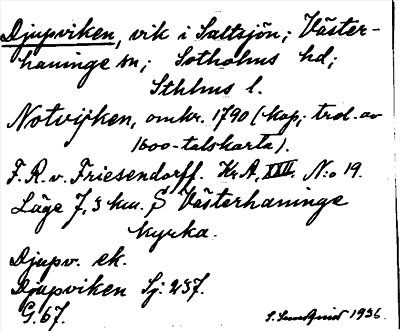 Djupviken, vik i Saltsjön; Väster-
haninge sn; Sotholms hd;
Sthlms l.
Notvijken, omkr. 1790 (kop; trol. av
1600-talskarta).
F.R.v. Friesendorff. Kr.A. XXII. N:o 19.
Läge 7,3 km. S Västerhaninge
kyrka.
Djupv. ek.
Djupviken Sj: 237.
G.67. S. Lundquist 1936.